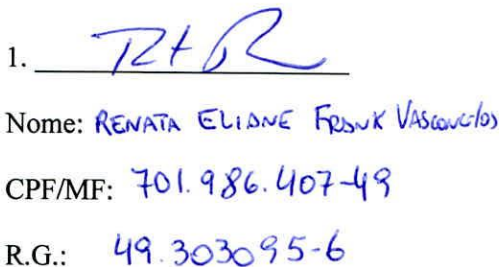 1.
Nome: RENATA ELIANE FRANK VASCONCELOS
CPF/MF: 701.986.407-49
R.G.: 49.303095-6